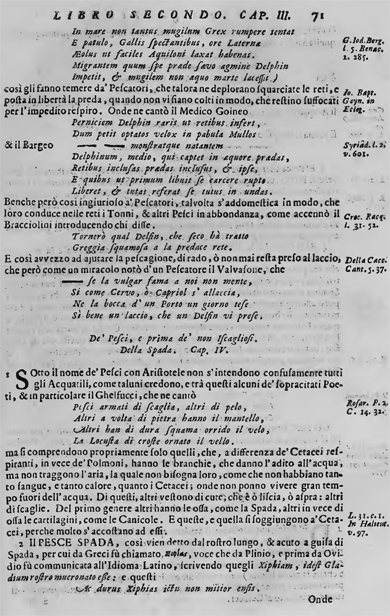 LIBRO SECONDO. CAP. III. 71
In mare non tantus mugilum Grex rumpere tentat
E patulo, Gallis spectantibus, ore Laternæ
Æolus ut faciles Aquiloni laxat habenas.
Migrantem quum spe prade savo agmine Delphin
Impetit, & mugilem non aquo marte lacessit)
così gli fanno temere da' Pescatori, che talora ne deplorano squarciate le reti, e
posta in libertà la preda, quando non vi siano colti in modo, che restino suffocati
per l'impedito respiro. Onde ne cantò il Medico Goineo
Perniciem Delphin raris ut retibus infert,
Dum petit optatos velox in pabula Mullos
& il Bargeo —— monstratque natantem
Delphinum, medio, qui captet in aquore pradas,
Retibus inclusas pradas inclusus, & ipse,
E quibus ut primum libuit se carcere rupto
Liberet, & tutas referat se tutus in undas.
Benche però così ingiurioso a' Pescatori, talvolta s'addomestica in modo, che
loro conduce nelle reti i Tonni, & altri Pesci in abbondanza, come accennò il
Bracciolini introducendo chi disse.
Tornerò qual Delfin, che seco hà trasto
Greggia squamosa a la predace rete.
E così avvezzo ad ajutare la pescagione, di rado, ò non mai resta preso al laccio,
che però come un miracolo notò d'un Pescatore il Valvasone, che
—— se la vulgar fama a noi non mente,
Si come Cervo, ò Capriol s'allaccia,
Ne la bocca d'un Porto un giorno tese
Sò bene un laccio, che un Delfin vi prese.
De' Pesci, e prima de' non iscagliosi.
Della Spada, Cap. IV.
1 Sotto il nome de' Pesci con Aristotele non s'intendono confusamente tutti
gli Acquatili, come taluni credono, e trà questi alcuni de' sopracitati Poe-
ti, & in particolare il Ghelfucci, che ne cantò
Pesci armati di scaglia, altri di pelo,
Altri a volta di pietra hanno il mantello,
Altri han di dura squama orrido il velo,
La Locusta di croste ornato il vello.
ma si comprendono propriamente solo quelli, che, a differenza de' Cetacei res-
piranti, in vece de' Polmoni, hanno le branchie, che danno l'adito all'acqua,
ma non traggono l'aria, la quale non bisogna loro, come che non habbiano tan-
to sangue, e tanto calore, quanto i Cetacei; onde non ponno vivere gran tem-
po fuori dell'acqua. Di questi, altri vestono di cute, che è ò liscia, ò aspra: altri
di scaglie. Del primo genere altri hanno le ossa, come la Spada, altri in vece di
ossa le cartilagini, come le Canicole. E queste, e quella si soggiungono a' Ceta-
cei, perche molto s'accostano ad essi.
2 Il PESCE SPADA, così vien detto dal rostro lungo, & acuto a guisa di
Spada, per cui da Greci fù chiamato, voce che da Plinio, e prima da Ovi-
dio fù communicata all'Idioma Latino, scrivendo quegli Xiphiam, idest Gla-
dium rostro mucronato esse: e questi
Ac durus Xiphias ictu non mitior ensis.
Onde
G. Iod. Berg.
l. 5. Benac.
2. 285.
Jo. Bapt.
Goyn. in
Eleg.
Syriad. l. 2.
v. 601.
Croc. Racq.
l. 31. 52.
Della Cacc.
Cant. 5. 37.
Rosar. P. 2.
C. 14. 32.
In Halieut.
v. 97.